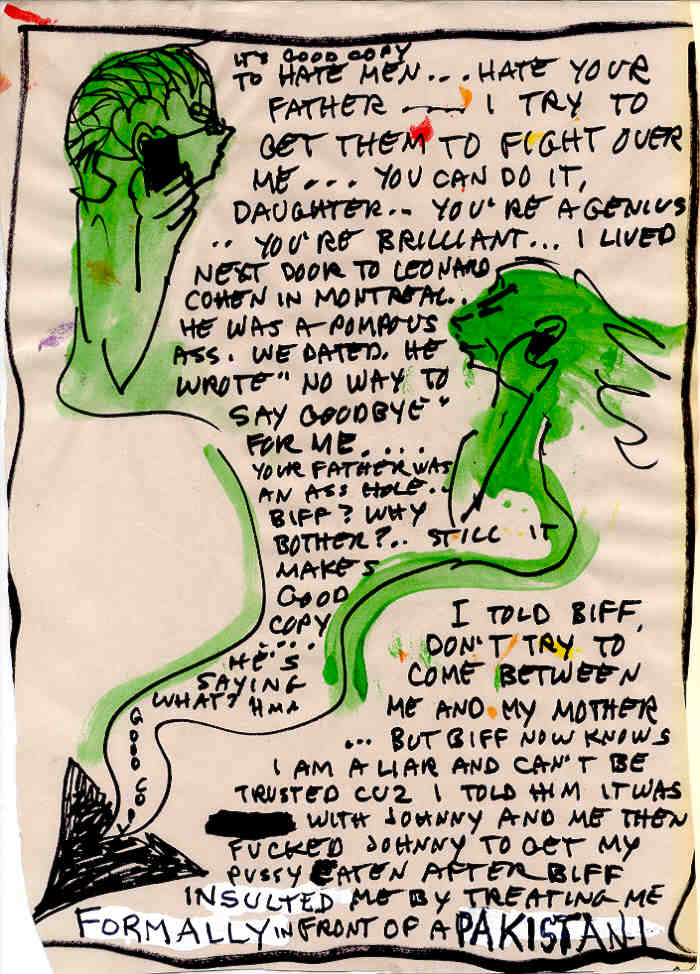 IT'S GOOD COPY
TO HATE MEN... HATE YOUR
FATHER — I TRY TO
GET THEM TO FIGHT OVER
ME... YOU CAN DO IT,
DAUGHTER.. YOU'RE A GENIUS
.. YOU'RE BRILLIANT... I LIVED
NEXT DOOR TO LEONARD
COHEN IN MONTREAL..
HE WAS A POMPOUS
ASS. WE DATED. HE
WROTE "NO WAY TO
SAY GOODBYE"
FOR ME....
YOUR FATHER WAS
AN ASS HOLE..
BIFF? WHY
BOTHER?.. STILL IT
MAKES
GOOD
COPY
....
HE'S
SAYING
WHAT? HMM
GOOD COPY
I TOLD BIFF,
DON'T TRY TO
COME BETWEEN
ME AND MY MOTHER
... BUT BIFF NOW KNOWS
I AM A LIAR AND CAN'T BE
TRUSTED CUZ I TOLD HIM IT WAS
WITH JOHNNY AND ME THEN
FUCKED JOHNNY TO GET MY
PUSSY EATEN AFTER BIFF
INSULTED ME BY TREATING ME
FORMALLY IN FRONT OF A PAKISTANI